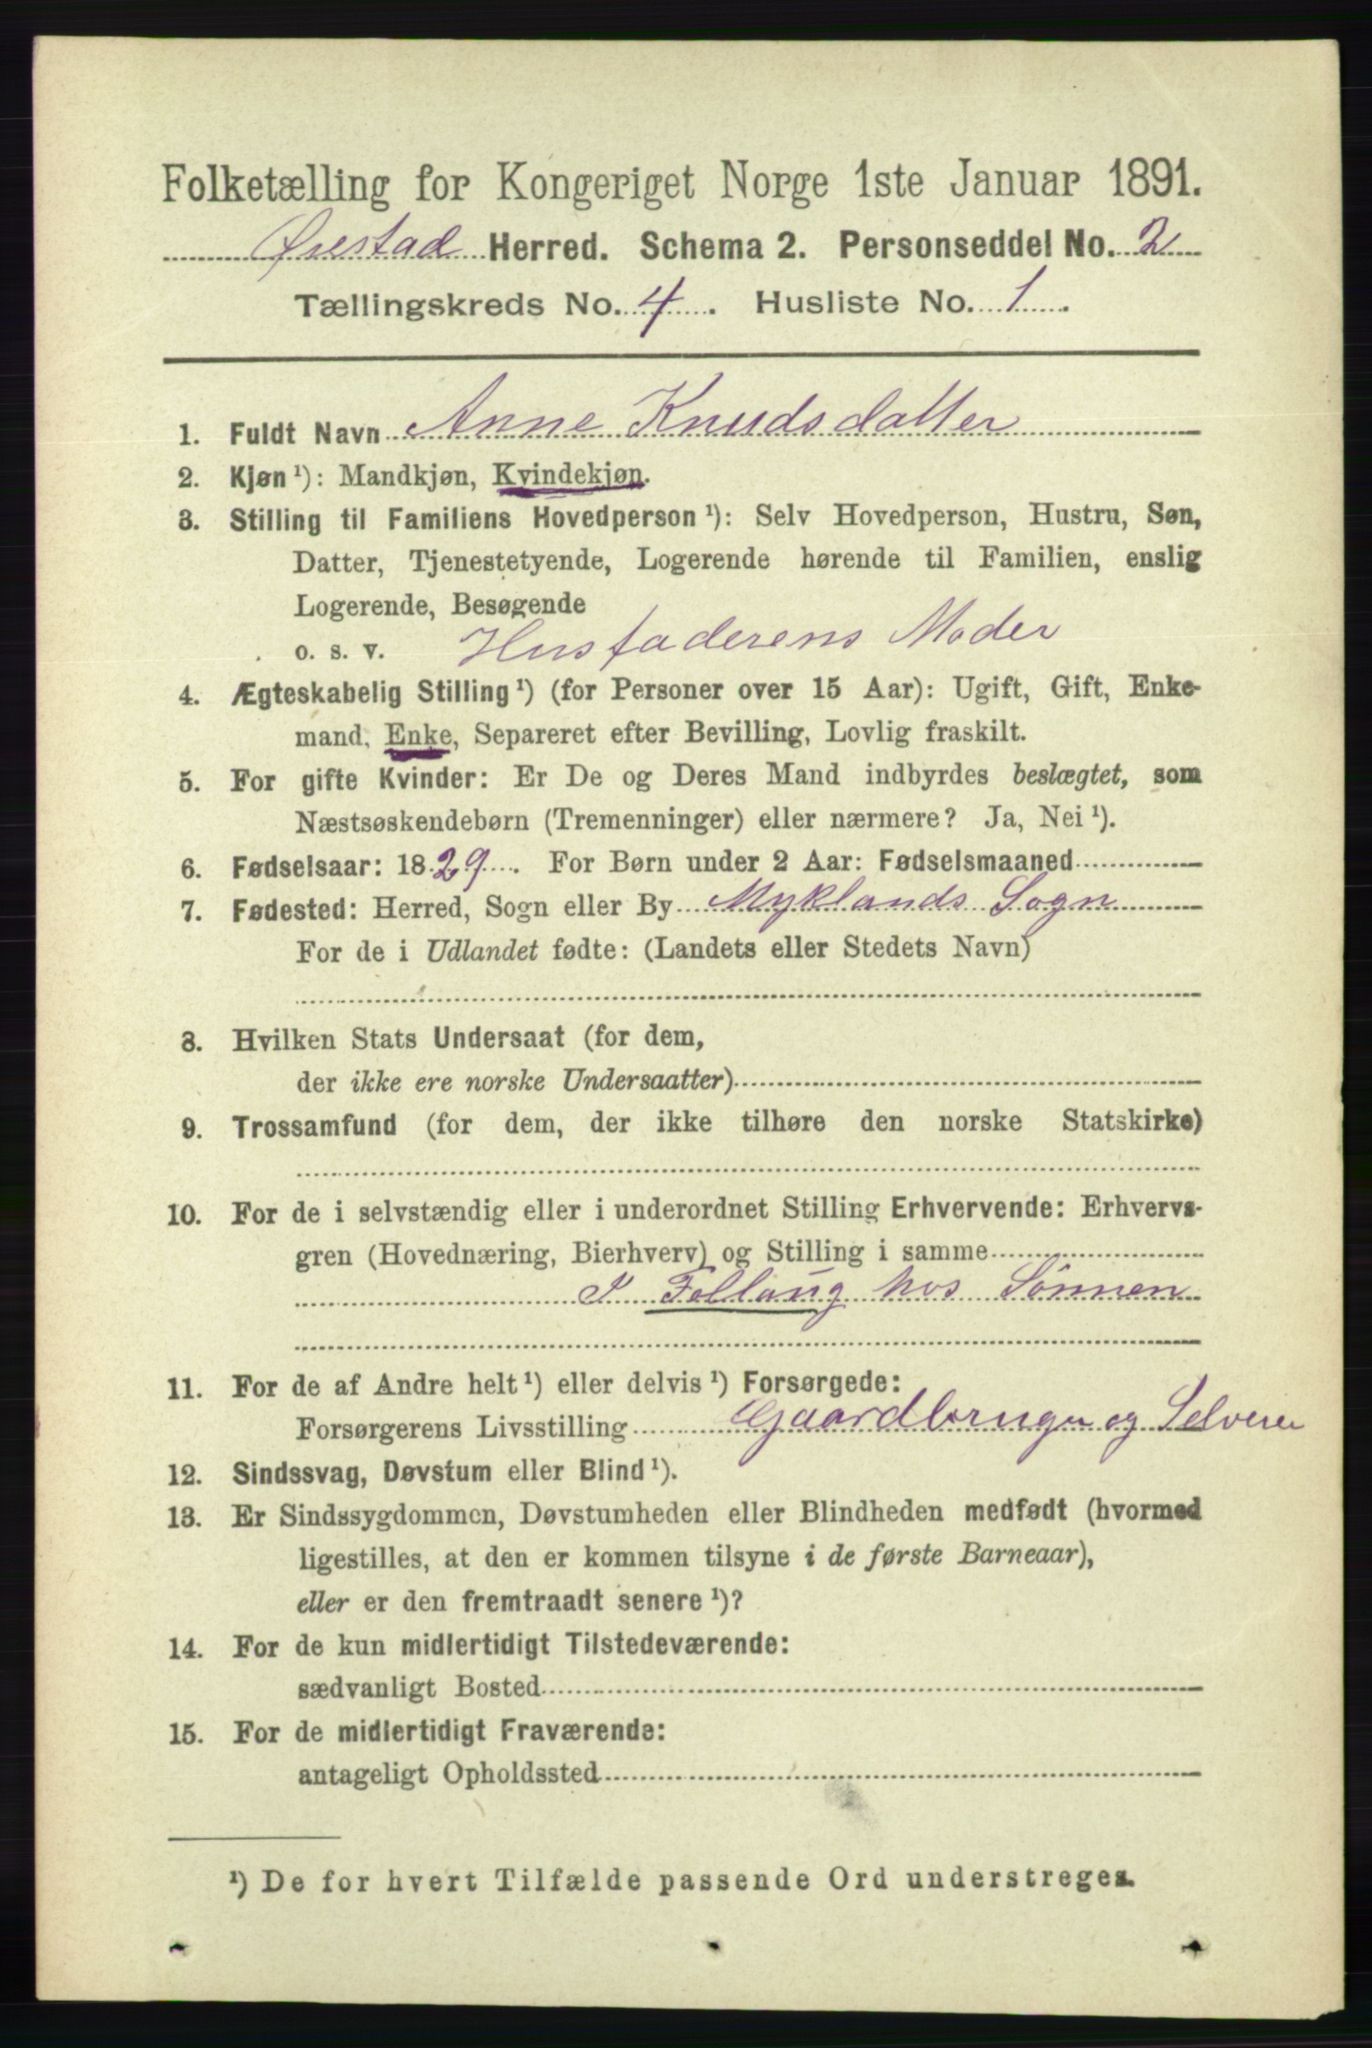 Folketælling for Kongeriget Norge 1ste Januar 1891.
Øiestad Herred. Schema 2. Personseddel No. 2
Tællingskreds No. 4. Husliste No. 1.
1. Fuldt Navn Anne Knudsdatter
2. Kjøn ¹): Mandkjøn, Kvindekjøn.
3. Stilling til Familiens Hovedperson ¹): Selv Hovedperson, Hustru, Søn,
Datter, Tjenestetyende, Logerende hørende til Familien, enslig
Logerende, Besøgende
o. s. v. Husfaderens Moder
4. Ægteskabelig Stilling ¹) (for Personer over 15 Aar): Ugift, Gift, Enke-
mand, Enke, Separeret efter Bevilling, Lovlig fraskilt.
5. For gifte Kvinder: Er De og Deres Mand indbyrdes beslægtet, som
Næstsøskendebørn (Tremenninger) eller nærmere? Ja, Nei ¹).
6. Fødselsaar: 1829. For Børn under 2 Aar: Fødselsmaaned
7. Fødested: Herred, Sogn eller By Myklands Sogn
For de i Udlandet fødte: (Landets eller Stedets Navn)
8. Hvilken Stats Undersaat (for dem,
der ikke ere norske Undersaatter)
9. Trossamfund (for dem, der ikke tilhøre den norske Statskirke)
10. For de i selvstændig eller i underordnet Stilling Erhvervende: Erhvervs-
gren (Hovednæring, Bierhverv) og Stilling i samme
I Follaug hos Sønnen
11. For de af Andre helt ¹) eller delvis ¹) Forsørgede:
Forsørgerens Livsstilling Gaardbruger og Selveier
12. Sindssvag, Døvstum eller Blind ¹).
13. Er Sindssygdommen, Døvstumheden eller Blindheden medfødt (hvormed
ligestilles, at den er kommen tilsyne i de første Barneaar),
eller er den fremtraadt senere ¹)?
14. For de kun midlertidigt Tilstedeværende:
sædvanligt Bosted
15. For de midlertidigt Fraværende:
antageligt Opholdssted
¹) De for hvert Tilfælde passende Ord understreges.